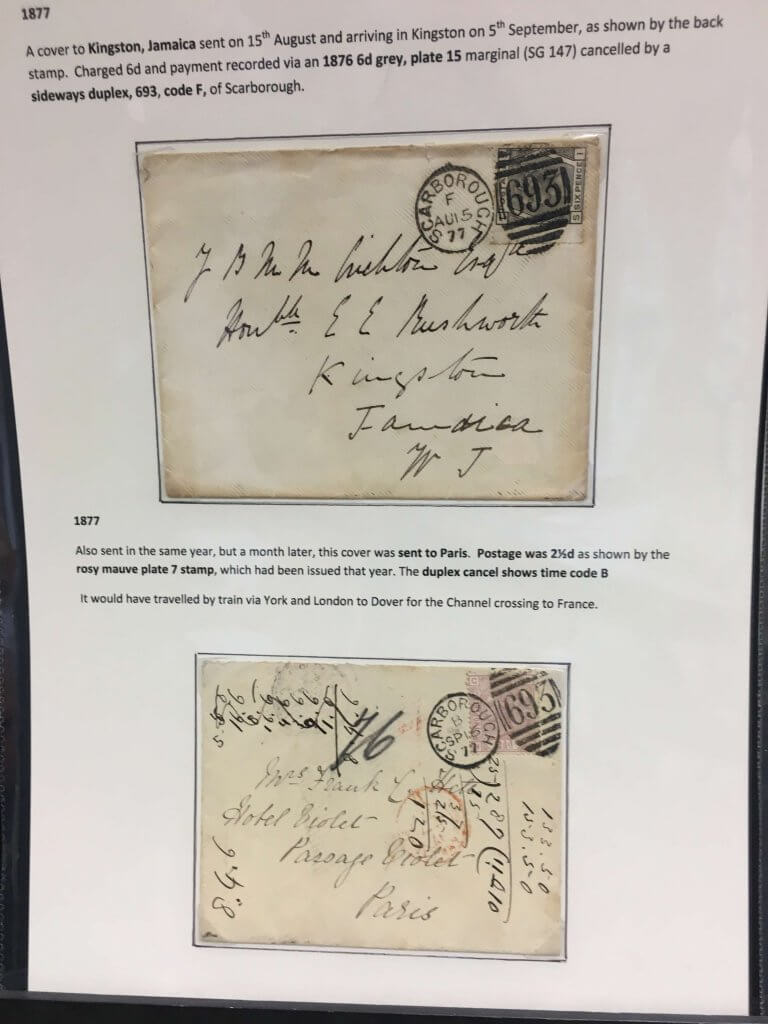 1877
A cover to Kingston, Jamaica sent on 15th August and arriving in Kingston on 5th September, as shown by the back
stamp. Charged 6d and payment recorded via an 1876 6d grey, plate 15 marginal (SG 147) cancelled by a
sideways duplex, 693, code F, of Scarborough.
SCARBOROUGH
F
AU 15
77
693
SIX PENCE
J B M M Crichton Esqre
Honble E E Rushworth
Kingston
Jamaica
W I
1877
Also sent in the same year, but a month later, this cover was sent to Paris. Postage was 2½d as shown by the
rosy mauve plate 7 stamp, which had been issued that year. The duplex cancel shows time code B
It would have travelled by train via York and London to Dover for the Channel crossing to France.
SCARBOROUGH
B
SP 15
77
693
76
Mrs Frank L
Hotel Violet
Passage Violet
Paris
8.4.6
120
153.50
153.50